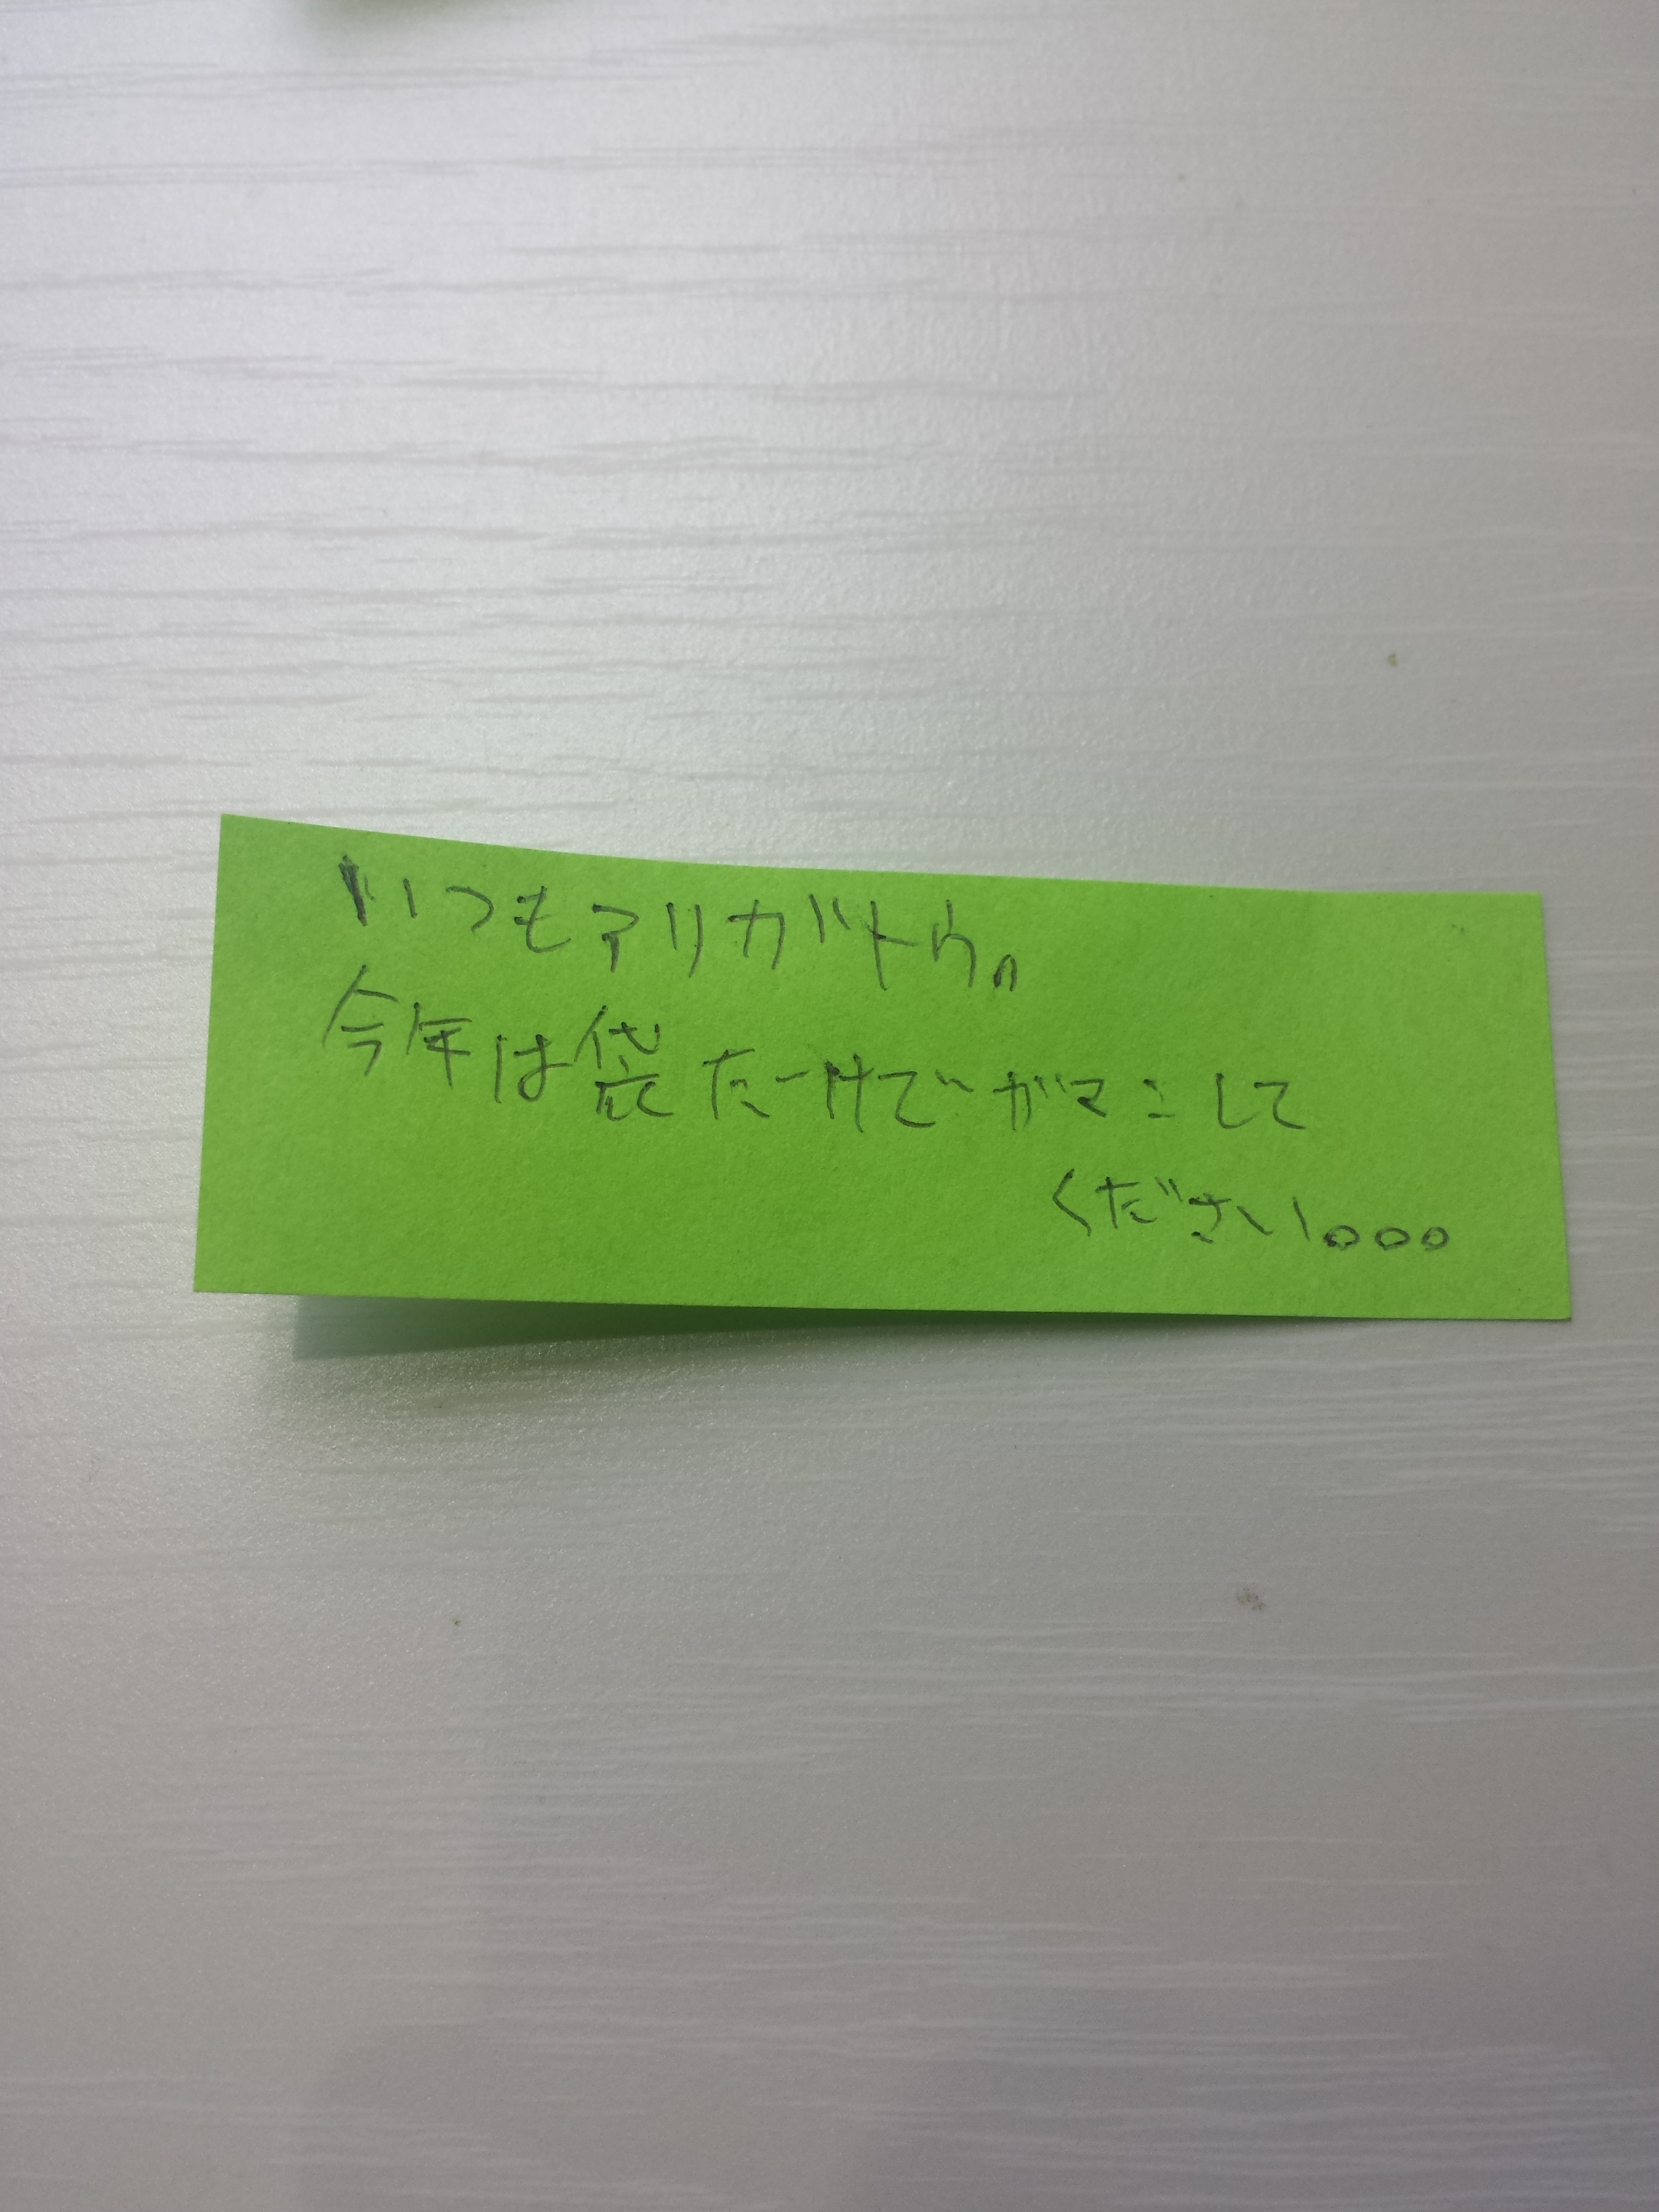 いつもアリガトウ。
今年は袋だけでガマンして
ください。。。